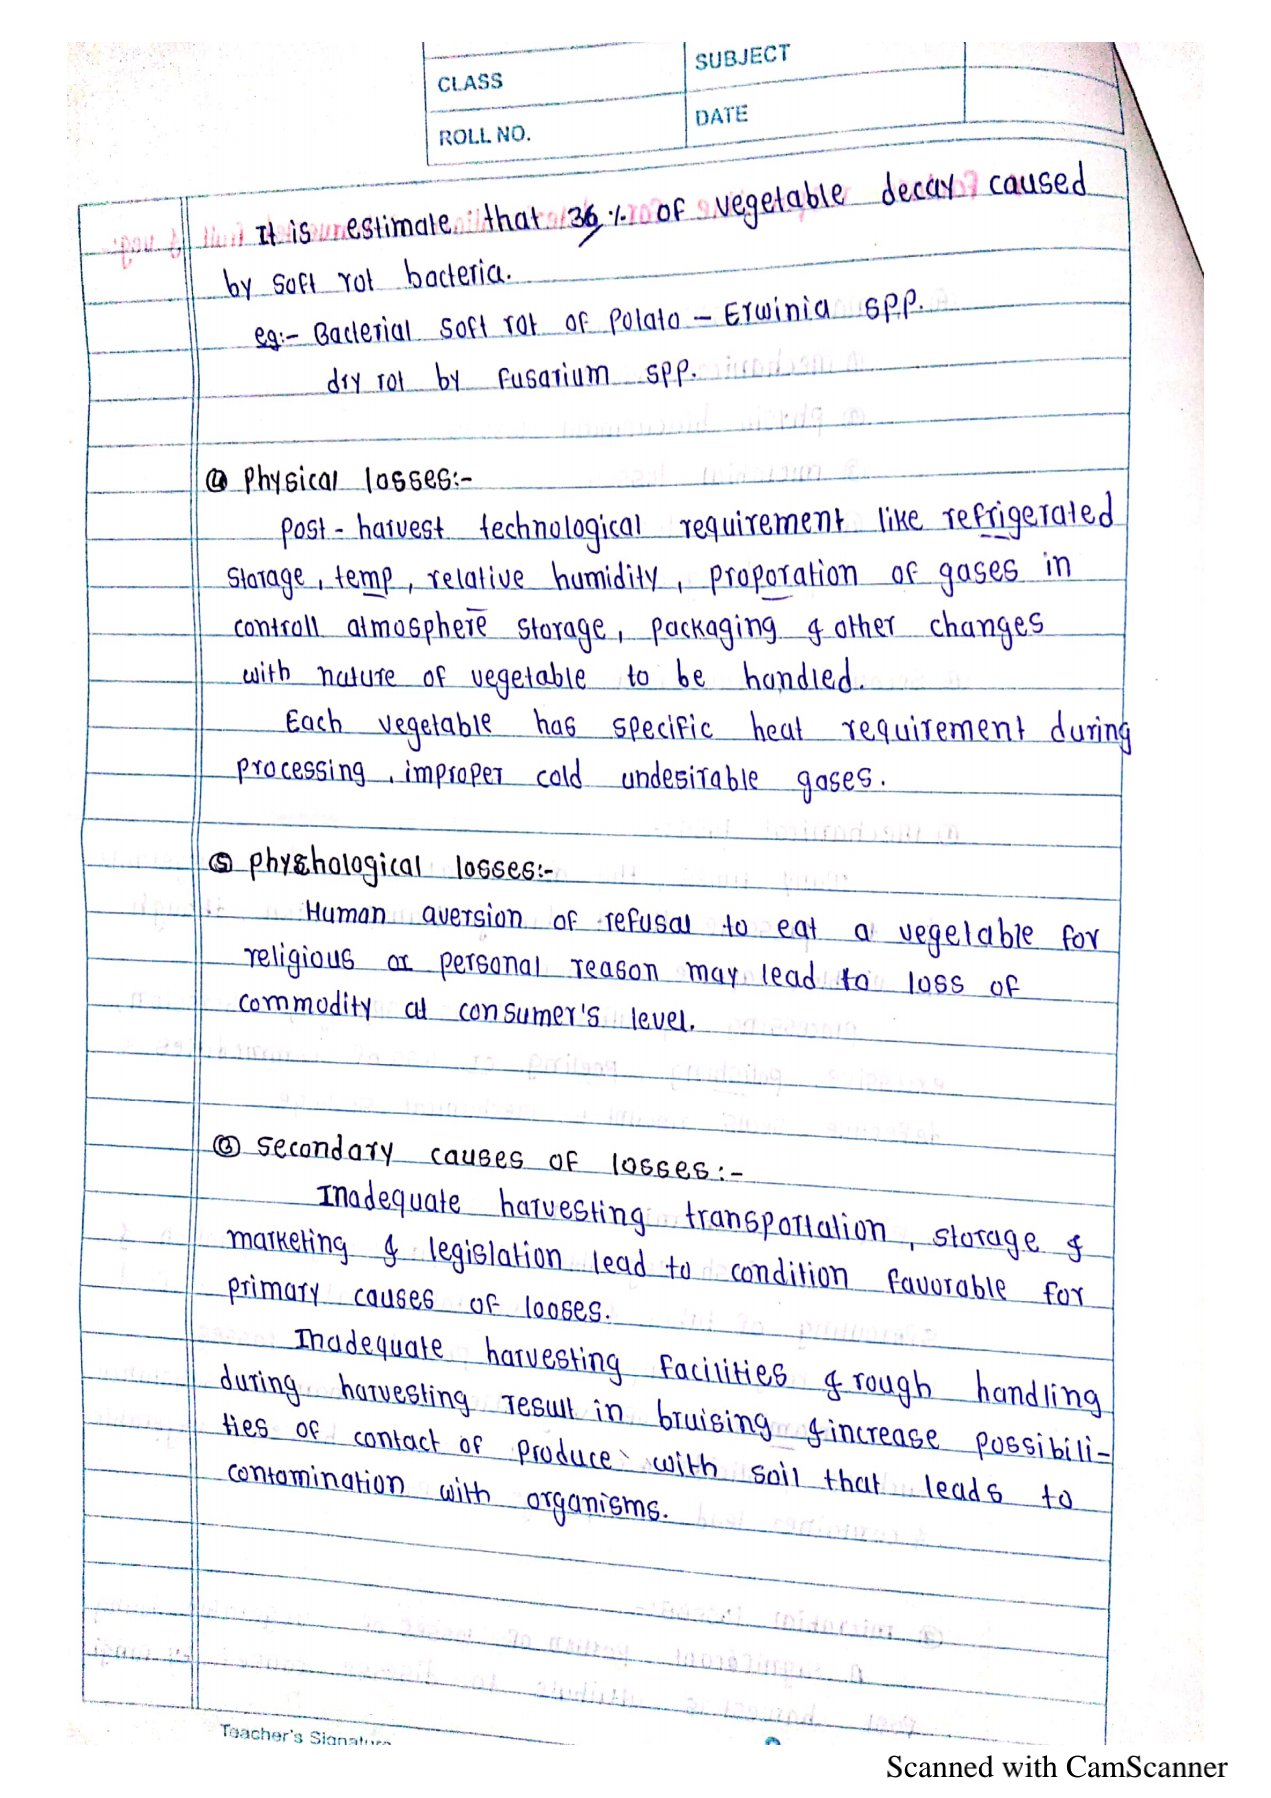 CLASS
SUBJECT
ROLL NO.
DATE
It is estimate that 36 % of vegetable decay caused
by soft rot bacteria.
eg:- Bacterial soft rot of Potato - Erwinia spp.
dry rot by fusarium spp.
④ Physical losses:-
Post - harvest technological requirement like refrigerated
storage, temp, relative humidity, proporation of gases in
controll atmosphere storage, packaging & other changes
with nature of vegetable to be handled.
Each vegetable has specific heat requirement during
processing, improper cold undesirable gases.
⑤ Phychological losses:-
Human aversion of refusal to eat a vegetable for
religious or personal reason may lead to loss of
commodity at consumer's level.
⑥ Secondary causes of losses:-
Inadequate harvesting transportation, storage &
marketing & legislation lead to condition favorable for
primary causes of looses.
Inadequate harvesting facilities & rough handling
during harvesting result in bruising & increase possibili-
ties of contact of produce with soil that leads to
contamination with organisms.
Teacher's Signature
Scanned with CamScanner